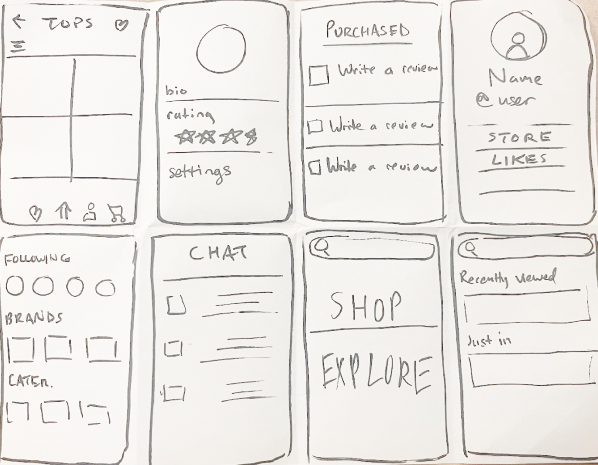 TOPS
bio
rating
settings
PURCHASED
Write a review
Write a review
Write a review
Name
@user
STORE
LIKES
FOLLOWING
BRANDS
CATER.
CHAT
SHOP
EXPLORE
Recently viewed
Just in